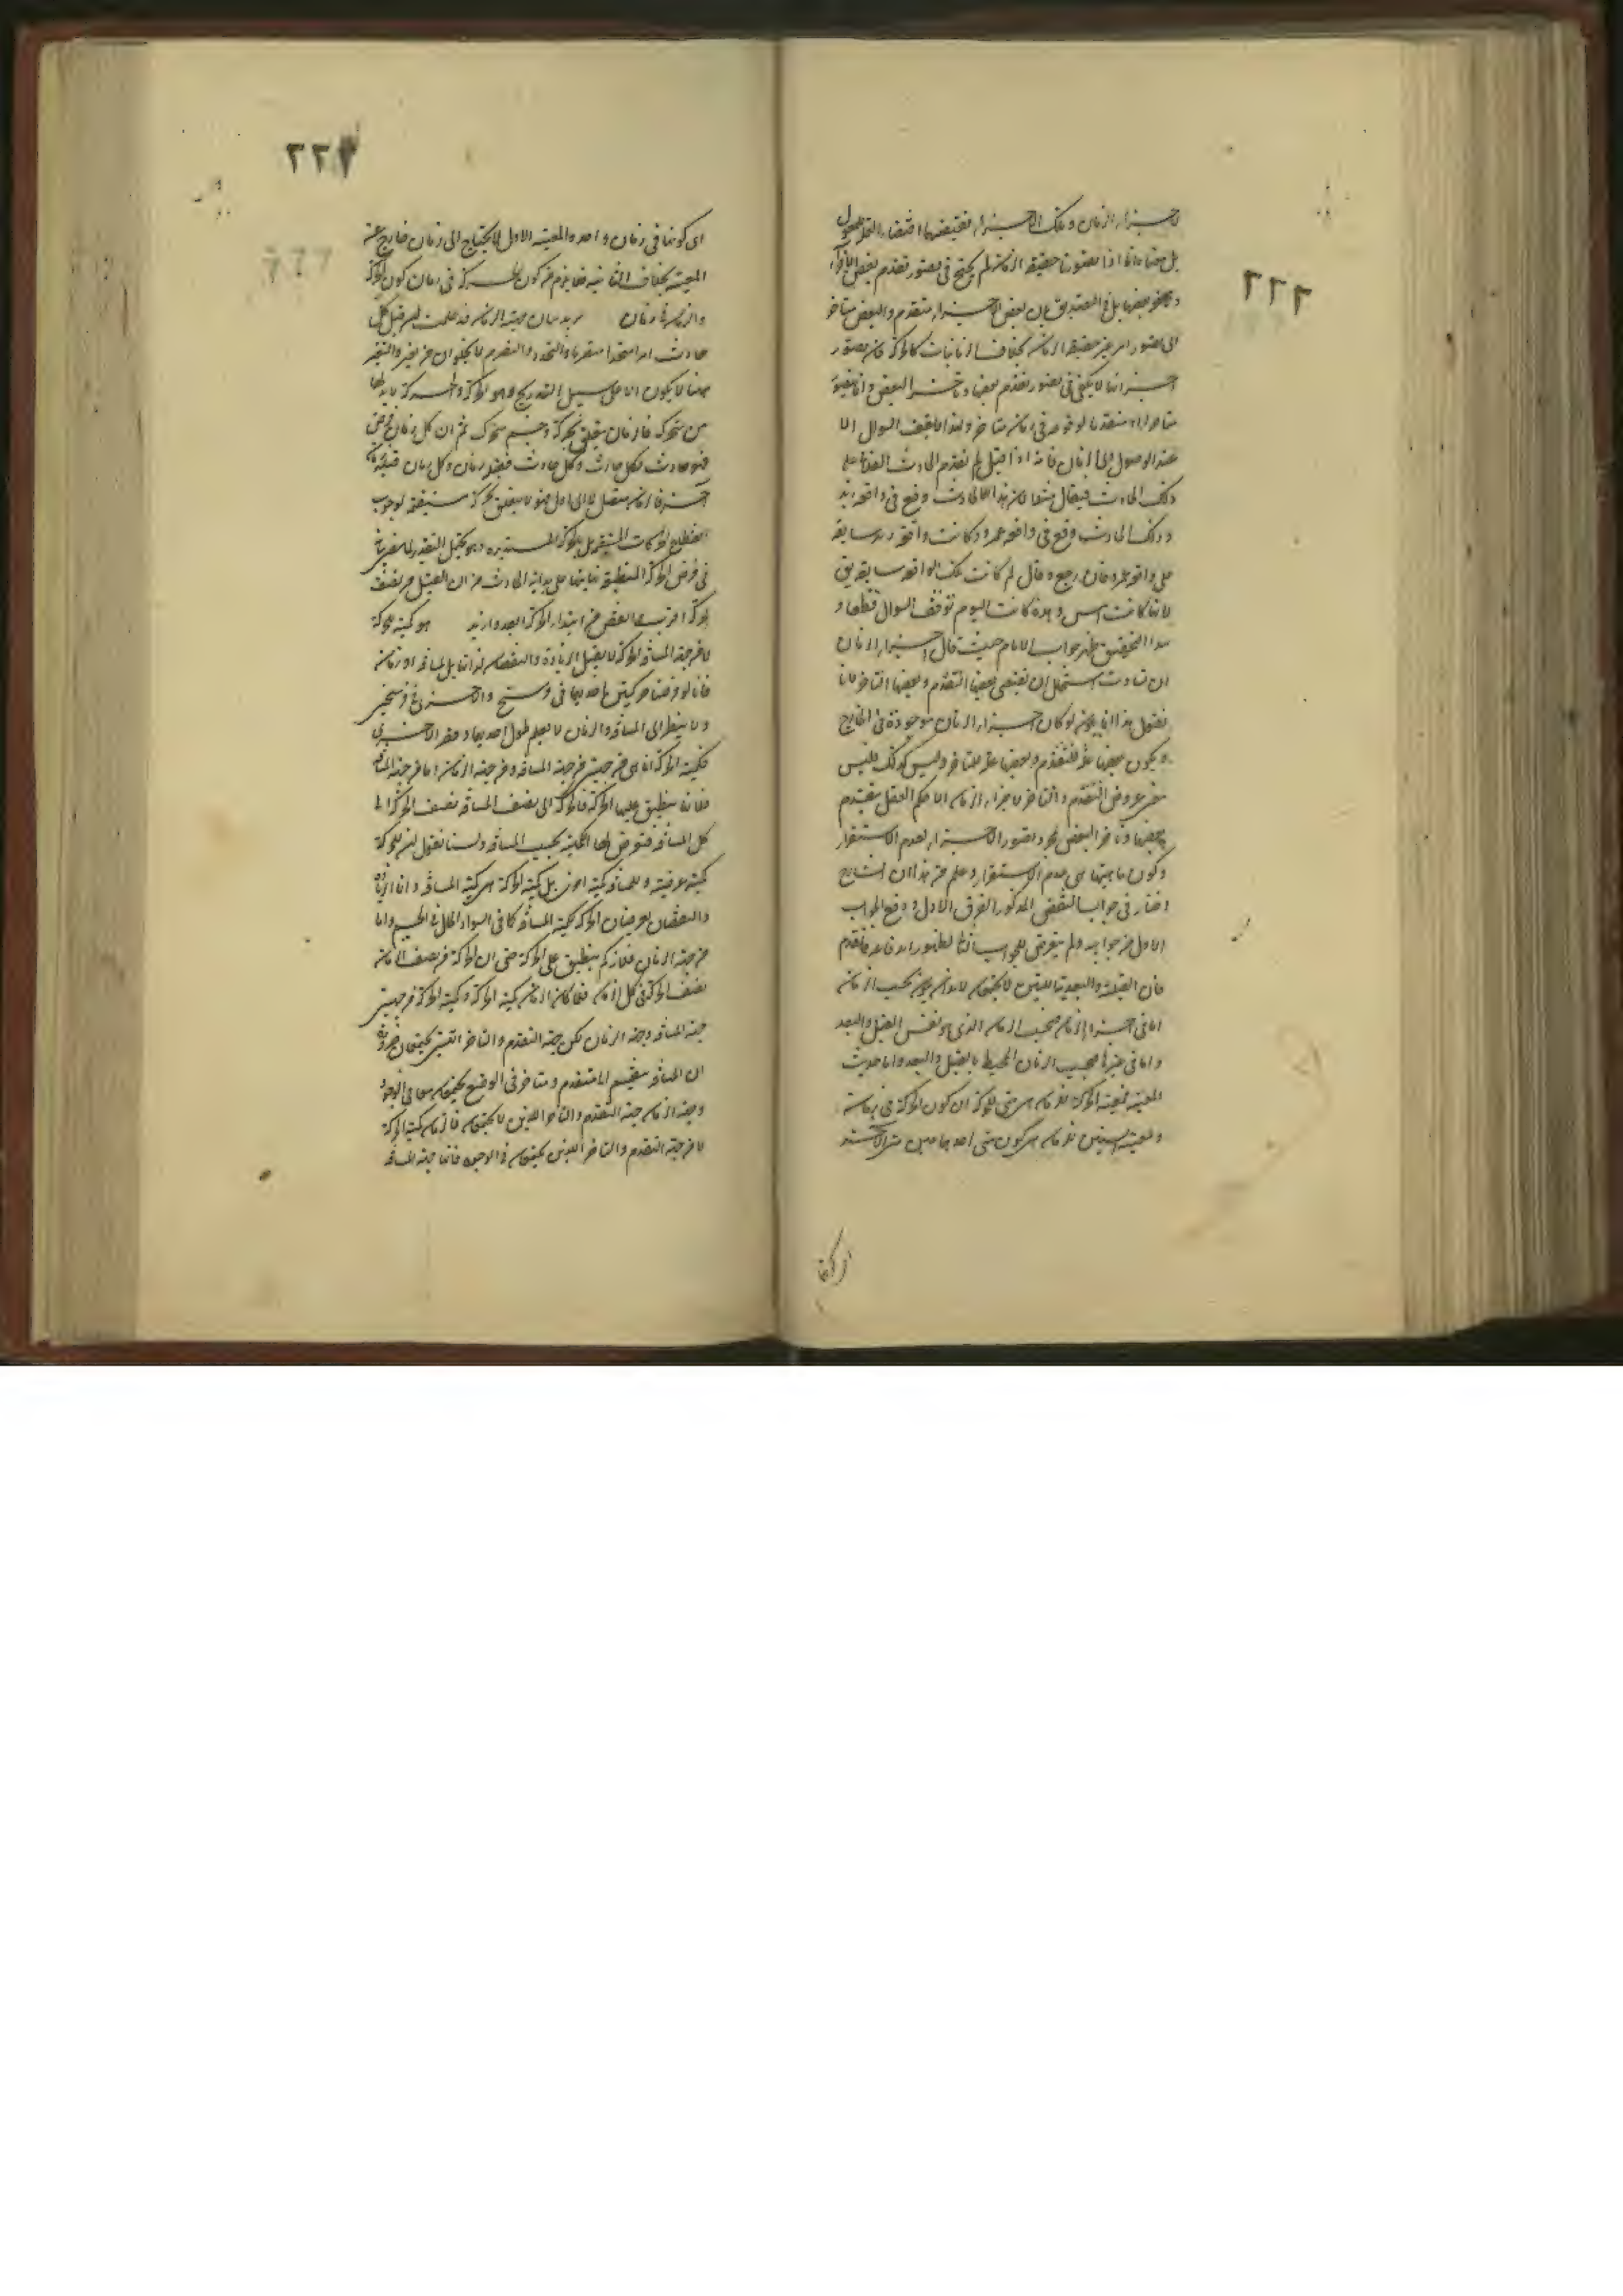 ٢٢٢
لاجزاء الزمان وتلك الاجزاء
بل معناه انا اذا تصورنا حقيقة الزمان لم يحتج في تصور تقدم بعض
بل في التصديق بان بعض الاجزاء متقدم والبعض متاخر
الى تصور امر غير حقيقة الزمان بخلاف الزمانيات كالحركة فان تصور
اجزائها لا يكفي في تصور تقدم بعضها وتاخر البعض وانما تصير
متاخرا او متقدما لوقوعه في زمان متاخر ولهذا لا يقف السوال الا
عند الوصول الى الزمان فانه اذا قيل لم تقدم الحادث الفلاني على
ذلك الحادث فيقال مثلا لان هذا الحادث وقع في واقعة زيد
وذلك الحادث وقع في واقعة عمرو وكانت واقعة زيد سابقة
على واقعة عمرو فان رجع وقال لم كانت تلك الواقعة سابقة
لانها كانت امس وهذه كانت اليوم توقف السوال قطعا و
هذا التحقيق ظهر جواب الامام حيث قال اجزاء الزمان
ان تساوت استحال ان يقتضي بعضها التقدم وبعضها التاخر فانا
نقول هذا انما يلزم لو كان اجزاء الزمان موجودة في الخارج
ويكون بعضها علة للتقدم وبعضها علة للتاخر وليس كذلك فليس
معنى عروض التقدم والتاخر لاجزاء الزمان الا حكم العقل بتقدم
بعضها وتاخر البعض بمجرد تصور الاجزاء لعدم الاستقرار
وكون ماهيتها هي عدم الاستقرار وعلم من هذا ان الشارح
اختار في جواب النقض المذكور الفرق الاول ودفع الجواب
الاول من جوابيه ولم يتعرض للجواب الثاني لظهور اندفاعه فالتقدم
فان القبلية والبعدية اللتين لا يجتمعان لا بد ان يكون بحسب الزمان
اما في اجزاء الزمان فبحسب الزمان الذي هو نفس القبل والبعد
واما في غيرها فبحسب الزمان المحيط بالقبل والبعد واما حديث
المعية فمعية الحركة للزمان هي متى للحركة اي كون الحركة في زمان
ومعية الشيئين للزمان هي كون متى احدهما عين متى الآخر
اي كونها
٢٢٣
اي كونهما في زمان واحد والمعية الاولى لا يحتاج الى زمان خارج عن
المعية بخلاف الثانية فلا يلزم من كون الحركة في زمان كون الحركة
والزمان في زمان يريد بيان مهية الزمان قد علمت ان قبل كل
حادث امرا متجددا متصرما والتجدد والتصرم لا يخلوان من تغير والتغير
ههنا لا يكون الا على سبيل التدريج وهو الحركة والحركة لا بد لها
من متحرك فالزمان متعلق بحركة وجسم متحرك ثم ان كل زمان يفرض
فهو حادث فكل حادث وكل حادث فقبله زمان وكل زمان قبله زمان
آخر فالزمان متصل لا الى اول فهو لا يتعلق بحركة مستقيمة لوجوب
انقطاع الحركات المستقيمة بل بالحركة المستديرة وهو يحتمل التقدير لما مر بيانه
في فرض الحركة المنطبق نهايتها على بداية الحادث من ان القبل من نصف
الحركة اقرب والبعض من ابتداء الحركة ابعد وازيد هو كمية للحركة
لا من جهة المسافة الحركة لا يقبل الزيادة والنقصان لذاتها بل لمسافة او زمان
فانا لو فرضنا حركتين احديهما في فرسخ والاخرى في فرسخين
ولا ينظر الى المسافة والزمان لا يعلم طول احديهما وقصر الاخرى
فكمية الحركة انما هي من جهتين من جهة المسافة ومن جهة الزمان اما من جهة المسافة
فلانها ينطبق عليها الحركة فالحركة الى نصف المسافة نصف الحركة الى
كل المسافة فتعرض لها الكمية بحسب المسافة ولسنا نقول ان للحركة
كمية عرضية وللمسافة كمية اخرى بل كمية الحركة هي كمية المسافة وانما الزيادة
والنقصان يعرضان الحركة لكمية المسافة كما في السواد الحال في الجسم واما
من جهة الزمان فلان ينطبق على الحركة حتى ان الحركة في نصف الزمان
نصف الحركة في كل الزمان فلما كان الزمان كمية الحركة وكمية الحركة من جهتين
جهة المسافة وجهة الزمان لكن جهة التقدم والتاخر اللذين يجتمعان
ان المسافة ينقسم الى متقدم ومتاخر في الوضع يجتمعان معا في الوجود
وجهة الزمان جهة التقدم والتاخر اللذين لا يجتمعان فالزمان كمية الحركة
لا من جهة التقدم والتاخر اللذين يجتمعان في الوجود فانها جهة المسافة